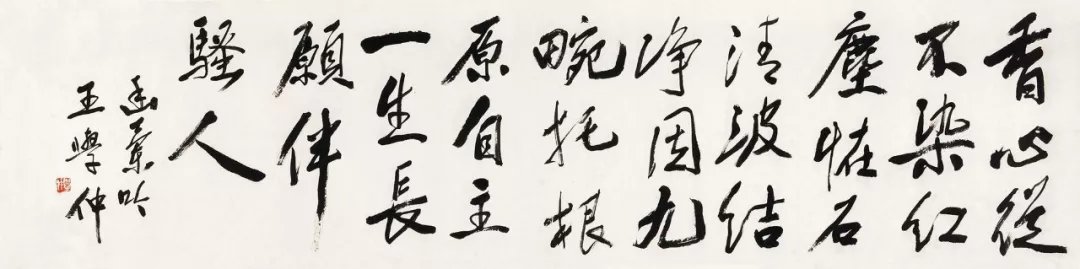 香心從
不染紅
塵恠石
清波結
净因九
畹托根
原自主
一生長
願伴
騷人
幽蘭吟
王學仲